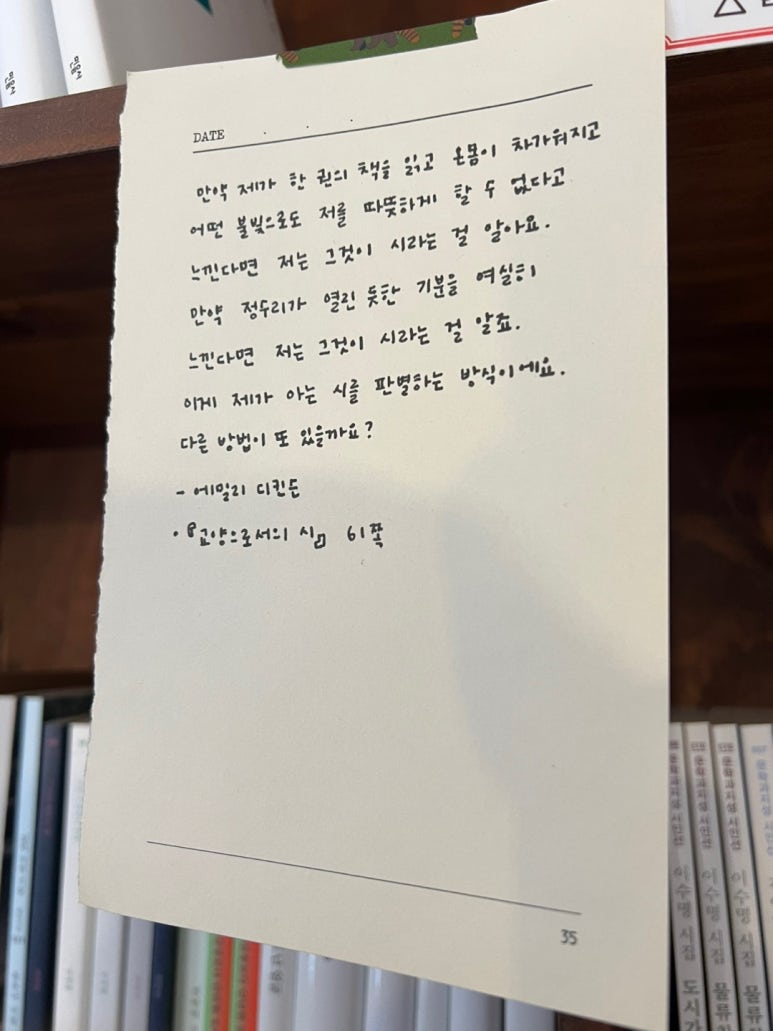 민음사
민음사
DATE . . .
만약 제가 한 권의 책을 읽고 온몸이 차가워지고
어떤 불빛으로도 저를 따뜻하게 할 수 없다고
느낀다면 저는 그것이 시라는 걸 알아요.
만약 정수리가 열린 듯한 기분을 여실히
느낀다면 저는 그것이 시라는 걸 알죠.
이게 제가 아는 시를 판별하는 방식이에요.
다른 방법이 또 있을까요?
- 에밀리 디킨슨
• 『교양으로서의 시』 61쪽
35
문학과지성 시인선
이수명 시집
문학과지성 시인선
이수명 시집 물류
문학과지성 시인선
이수명 시집 물류